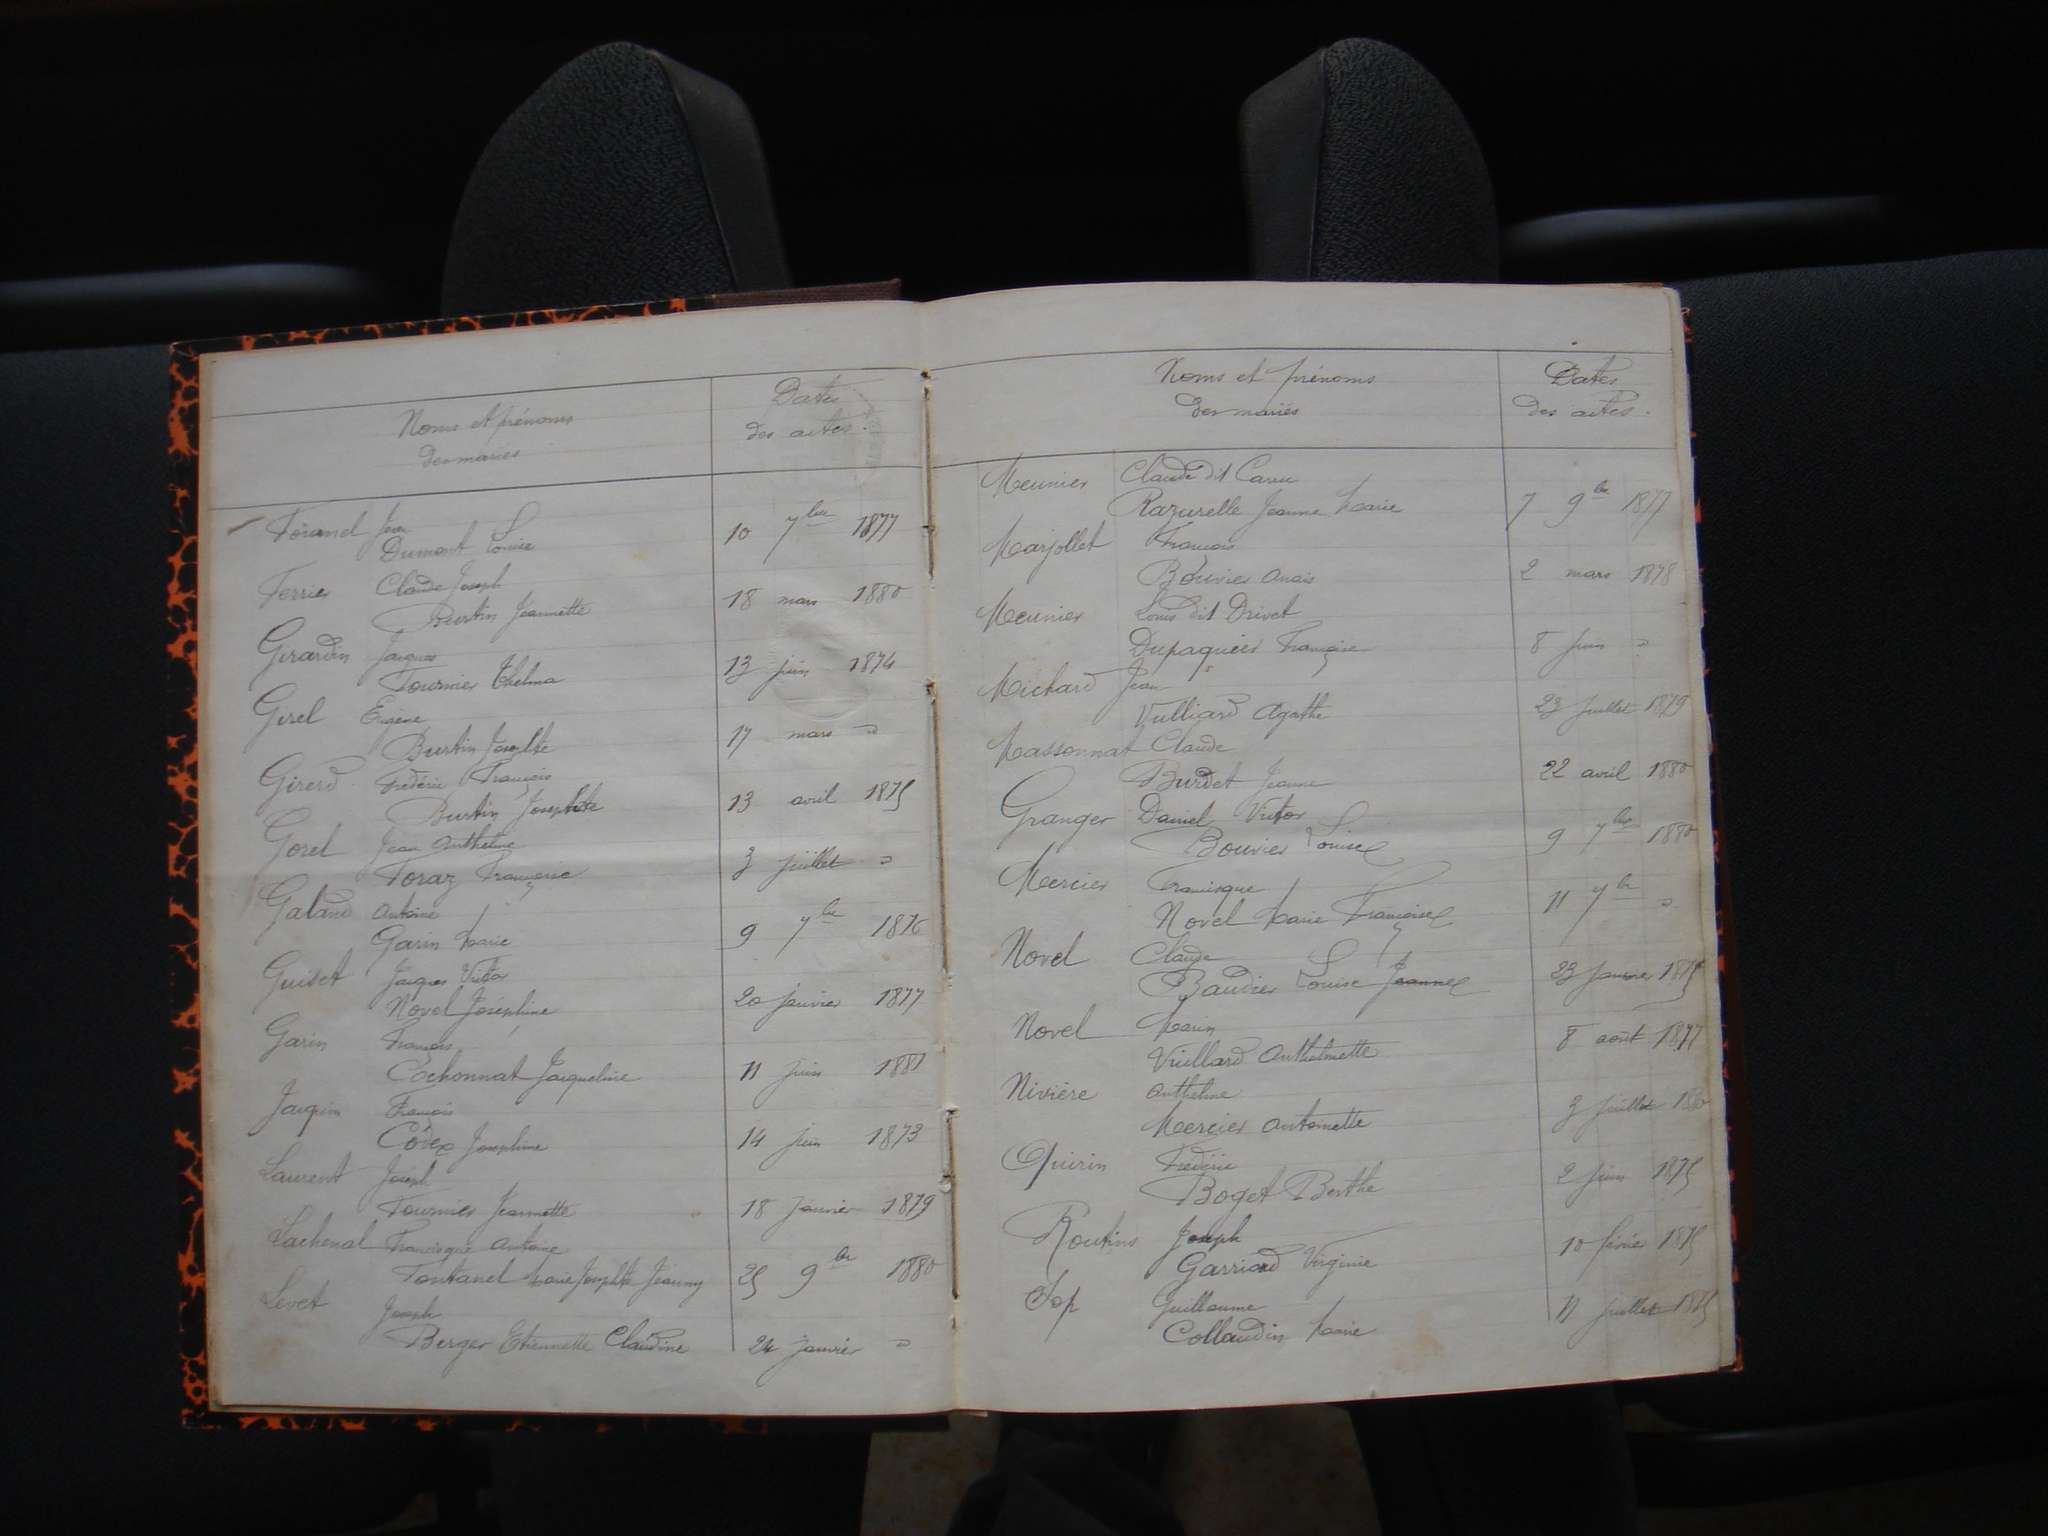 Noms et prénoms
des mariés
Dates
des actes.
Jean
Dumont Louise
10 7bre 1877
Ferrier Claude Joseph
Burtin Jeannette
18 mars 1880
Girardin Jacques
Fournier Thelma
13 juin 1874
Girel Eugène
Burtin Josephte
17 mars "
Girerd Frédéric François
Burtin Josephte
13 avril 1875
Gorel Jean Anthelme
Foraz Françoise
3 juillet "
Galand Antoine
Garin Marie
9 7bre 1876
Guiset Jacques Victor
Novel Joséphine
20 janvier 1877
Garin François
Cochonnat Jacqueline
11 juin 1881
Jacquin François
Josephine
14 juin 1873
Laurent Joseph
Fournier Jeannette
18 janvier 1879
Lachenal Francisque Antoine
Fontanel Marie Josephte Jeanny
25 9bre 1880
Levet Joseph
Berger Etiennette Claudine
24 janvier "
Noms et prénoms
des mariés
Dates
des actes.
Meunier Claude dit
Razurelle Jeanne Marie
7 9bre 1877
Marjollet François
Bouvier Anaïs
2 mars 1878
Meunier Louis dit Drivet
Dupaquier Françoise
8 juin "
Michard Jean
Vulliard Agathe
23 juillet 1879
Massonnat Claude
Burdet Jeanne
22 avril 1880
Granger Daniel Victor
Bouvier Louise
9 7bre 1880
Mercier Francisque
Novel Marie Françoise
11 7bre "
Novel Claude
Baudier Louise Jeanne
23 janvier 1875
Novel Marin
Vuillard Anthelmette
8 août 1877
Nivière Anthelme
Mercier Antoinette
3 juillet 1880
Quirin Frédéric
Boget Berthe
2 juin 1875
Routins Joseph
Garriod Virginie
10 février 1875
Sop Guillaume
Collaudin Marie
11 juillet 1875